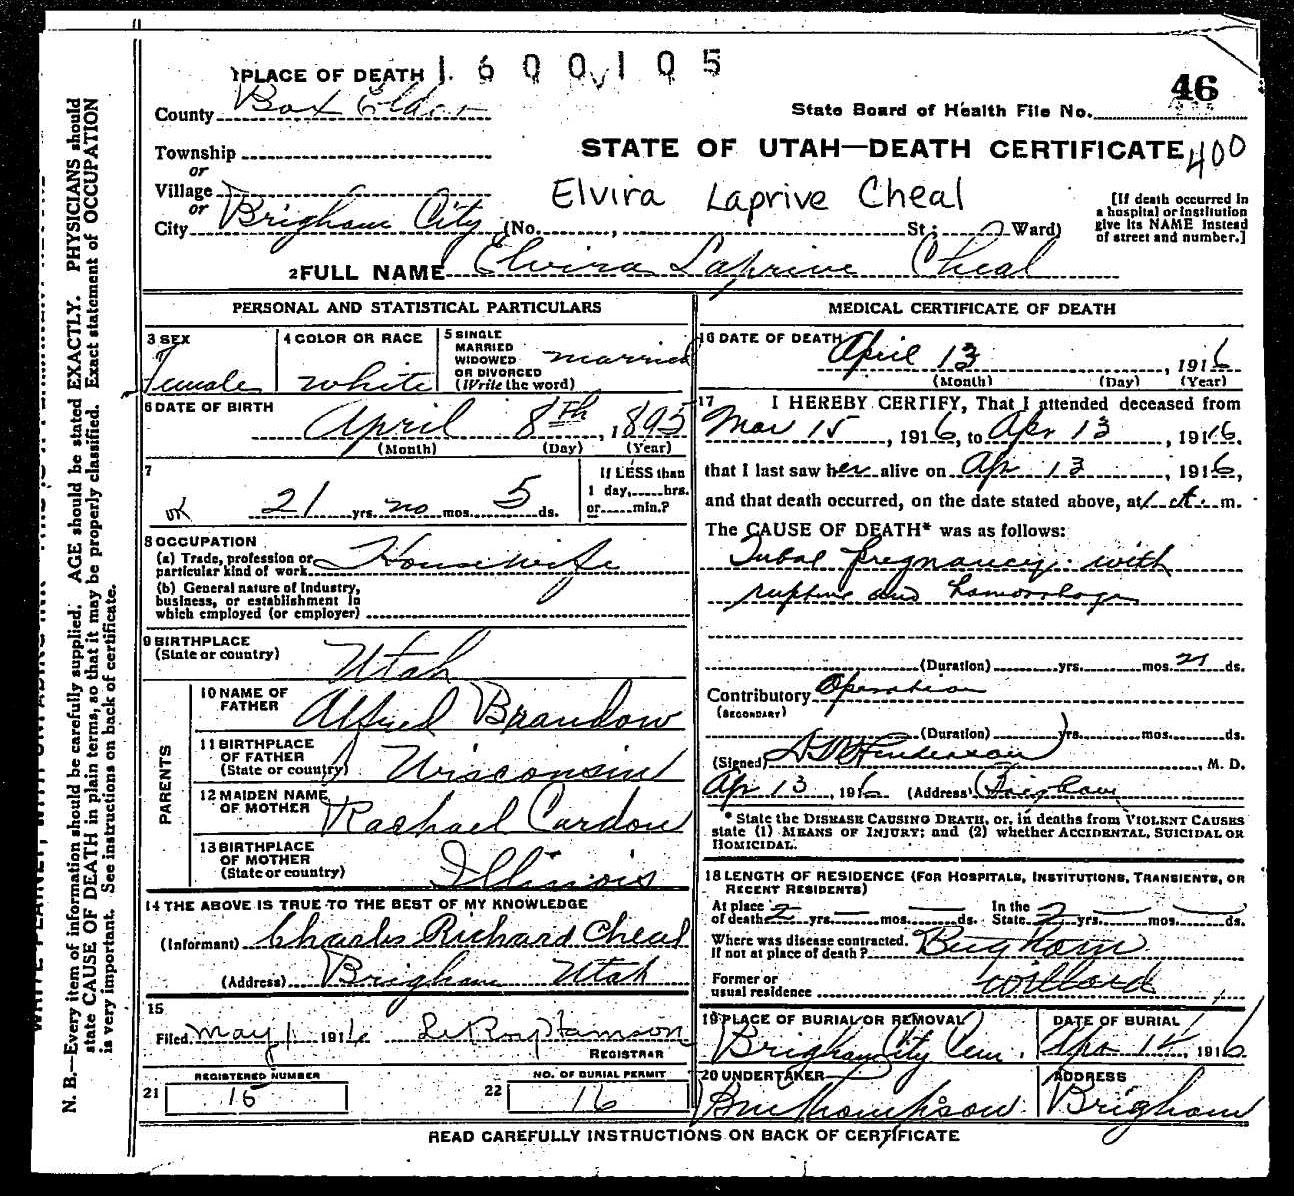 1 PLACE OF DEATH 1 6 0 0 1 0 5
46
County Box Elder
State Board of Health File No.
Township
STATE OF UTAH—DEATH CERTIFICATE 400
or
Village
Elvira Laprive Cheal
or
City Brigham City (No. , St; Ward)
[If death occurred in a hospital or institution give its NAME instead of street and number.]
2 FULL NAME Elvira Laprive Cheal
PERSONAL AND STATISTICAL PARTICULARS
3 SEX Female
4 COLOR OR RACE white
5 SINGLE MARRIED WIDOWED OR DIVORCED (Write the word) married
6 DATE OF BIRTH
April 8th, 1895
(Month) (Day) (Year)
7
21 yrs. no mos. 5 ds.
If LESS than 1 day, hrs. or min.?
8 OCCUPATION
(a) Trade, profession or particular kind of work Housewife
(b) General nature of Industry, business, or establishment in which employed (or employer)
9 BIRTHPLACE (State or country) Utah
PARENTS
10 NAME OF FATHER Alfred Brandow
11 BIRTHPLACE OF FATHER (State or country) Wisconsin
12 MAIDEN NAME OF MOTHER Rachael Cardon
13 BIRTHPLACE OF MOTHER (State or country) Illinois
14 THE ABOVE IS TRUE TO THE BEST OF MY KNOWLEDGE
(Informant) Charles Richard Cheal
(Address) Brigham Utah
15
Filed May 1 1916 LeRoy Hamson
REGISTRAR
REGISTERED NUMBER
21 15
NO. OF BURIAL PERMIT
22 16
MEDICAL CERTIFICATE OF DEATH
16 DATE OF DEATH April 13, 1916
(Month) (Day) (Year)
17 I HEREBY CERTIFY, That I attended deceased from
Mar 15, 1916, to Apr 13, 1916.
that I last saw her alive on Ap 13, 1916,
and that death occurred, on the date stated above, at m.
The CAUSE OF DEATH* was as follows:
Tubal pregnancy with
rupture and hemorrhage
(Duration) yrs. mos. 21 ds.
Contributory Operation
(SECONDARY)
(Duration) yrs. mos. ds.
(Signed) Henderson, M. D.
Apr 13, 1916 (Address) Brigham
* State the DISEASE CAUSING DEATH, or, in deaths from VIOLENT CAUSES
state (1) MEANS OF INJURY; and (2) whether ACCIDENTAL, SUICIDAL OR
HOMICIDAL.
18 LENGTH OF RESIDENCE (FOR HOSPITALS, INSTITUTIONS, TRANSIENTS, OR
RECENT RESIDENTS)
At place of death 2 yrs. mos. ds. In the State 2 yrs. mos. ds.
Where was disease contracted. If not at place of death? Brigham
Former or usual residence Willard
19 PLACE OF BURIAL OR REMOVAL Brigham City Cem.
DATE OF BURIAL Apr 14, 1916
20 UNDERTAKER Thompson
ADDRESS Brigham
READ CAREFULLY INSTRUCTIONS ON BACK OF CERTIFICATE
N. B.—Every item of information should be carefully supplied. AGE should be stated EXACTLY. PHYSICIANS should
state CAUSE OF DEATH in plain terms, so that it may be properly classified. Exact statement of OCCUPATION
is very important. See instructions on back of certificate.